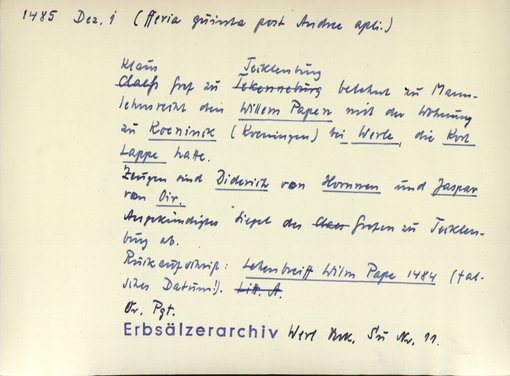 1485 Dez. 1 (Feria quinta post Andree apli.)
Klaus Tecklenburg
Claefs Graf zu Tekenneburg belehnt zu Mann-
lehnrecht den Willem Papen mit der Wohnung
zu Koeninik (Koeningen) bei Werle, die Kort
Lappe hatte.
Zeugen sind Diderich von Hornnen und Jaspar
von Oir.
Angekündigtes Siegel des Claes Grafen zu Tecklen-
burg ab.
Rückaufschrift: Lehenbreiff Wilm Pape 1484 (fal-
sches Datum!). Litt. A.
Or. Pgt.
Erbsälzerarchiv Werl Urk. Nr. 11.